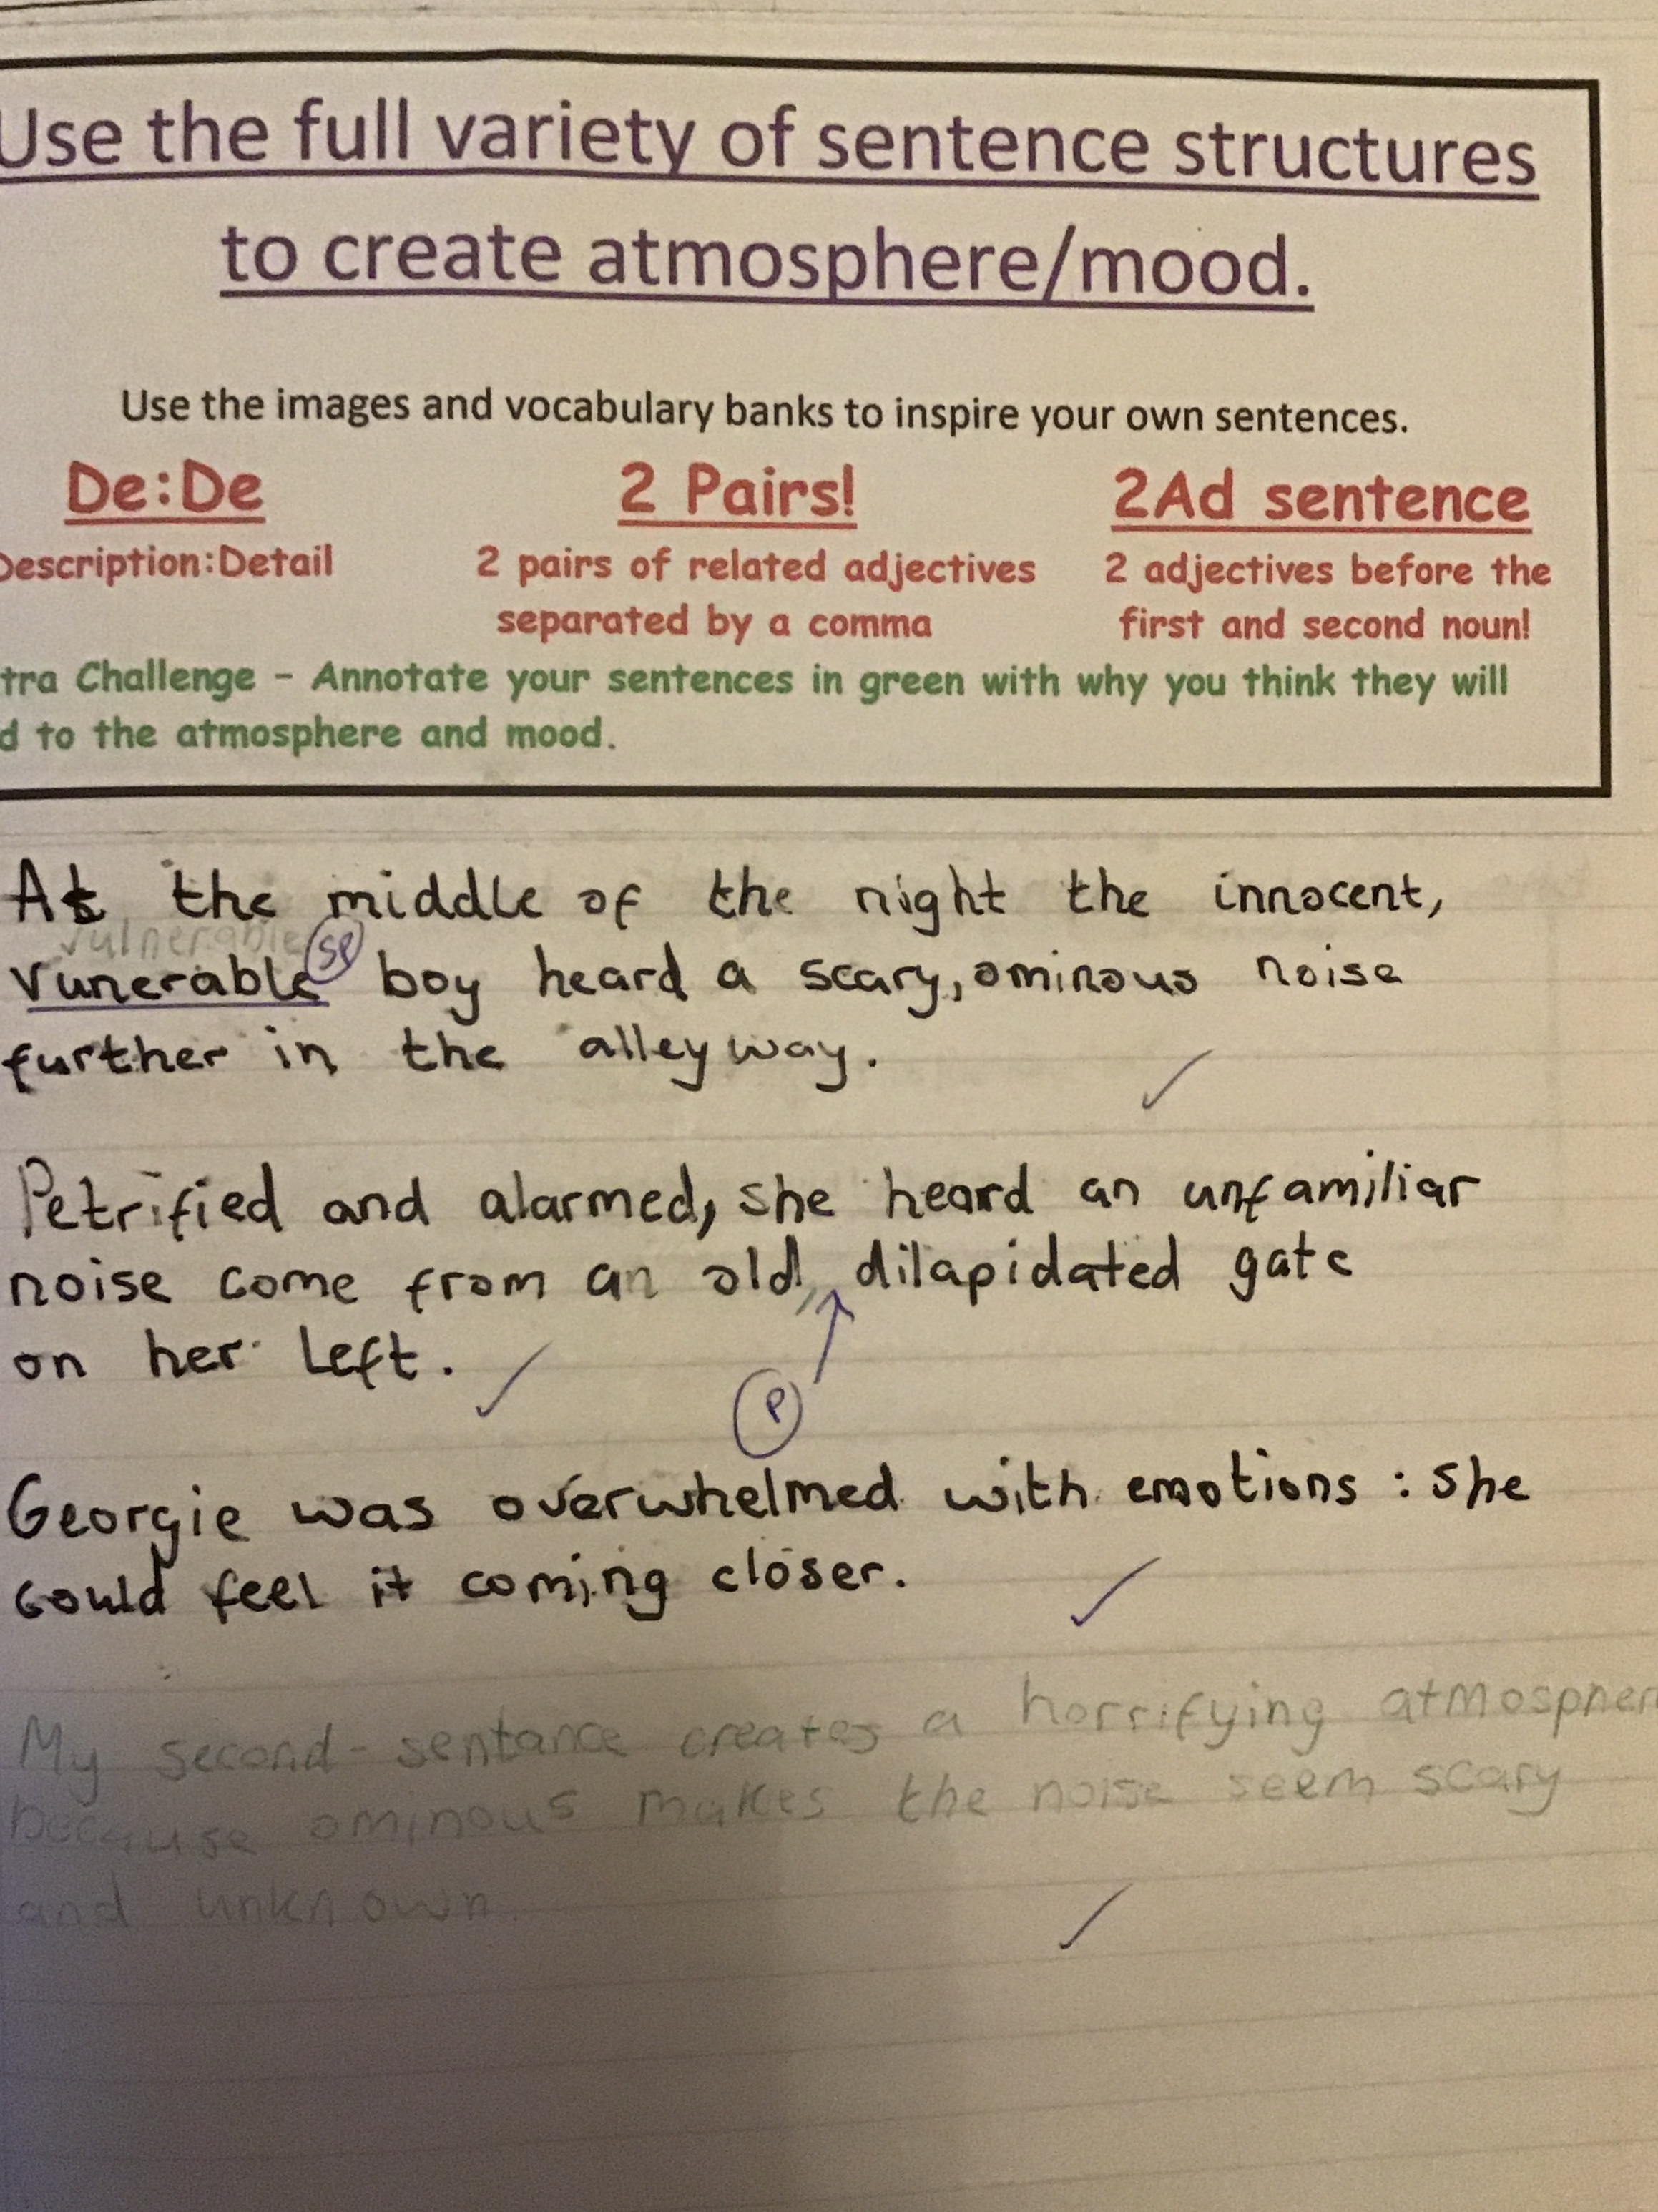 Use the full variety of sentence structures
to create atmosphere/mood.
Use the images and vocabulary banks to inspire your own sentences.
De:De
Description:Detail
2 Pairs!
2 pairs of related adjectives
separated by a comma
2Ad sentence
2 adjectives before the
first and second noun!
tra Challenge – Annotate your sentences in green with why you think they will
d to the atmosphere and mood.
At the middle of the night the innocent,
vulnerable
SP
vunerable boy heard a scary, ominous noise
further in the alleyway.
Petrified and alarmed, she heard an unfamiliar
noise come from an old, dilapidated gate
on her left.
P
Georgie was overwhelmed with emotions : she
could feel it coming closer.
My second-sentance creates a horrifying atmospher
because ominous makes the noise seem scary
and unknown.